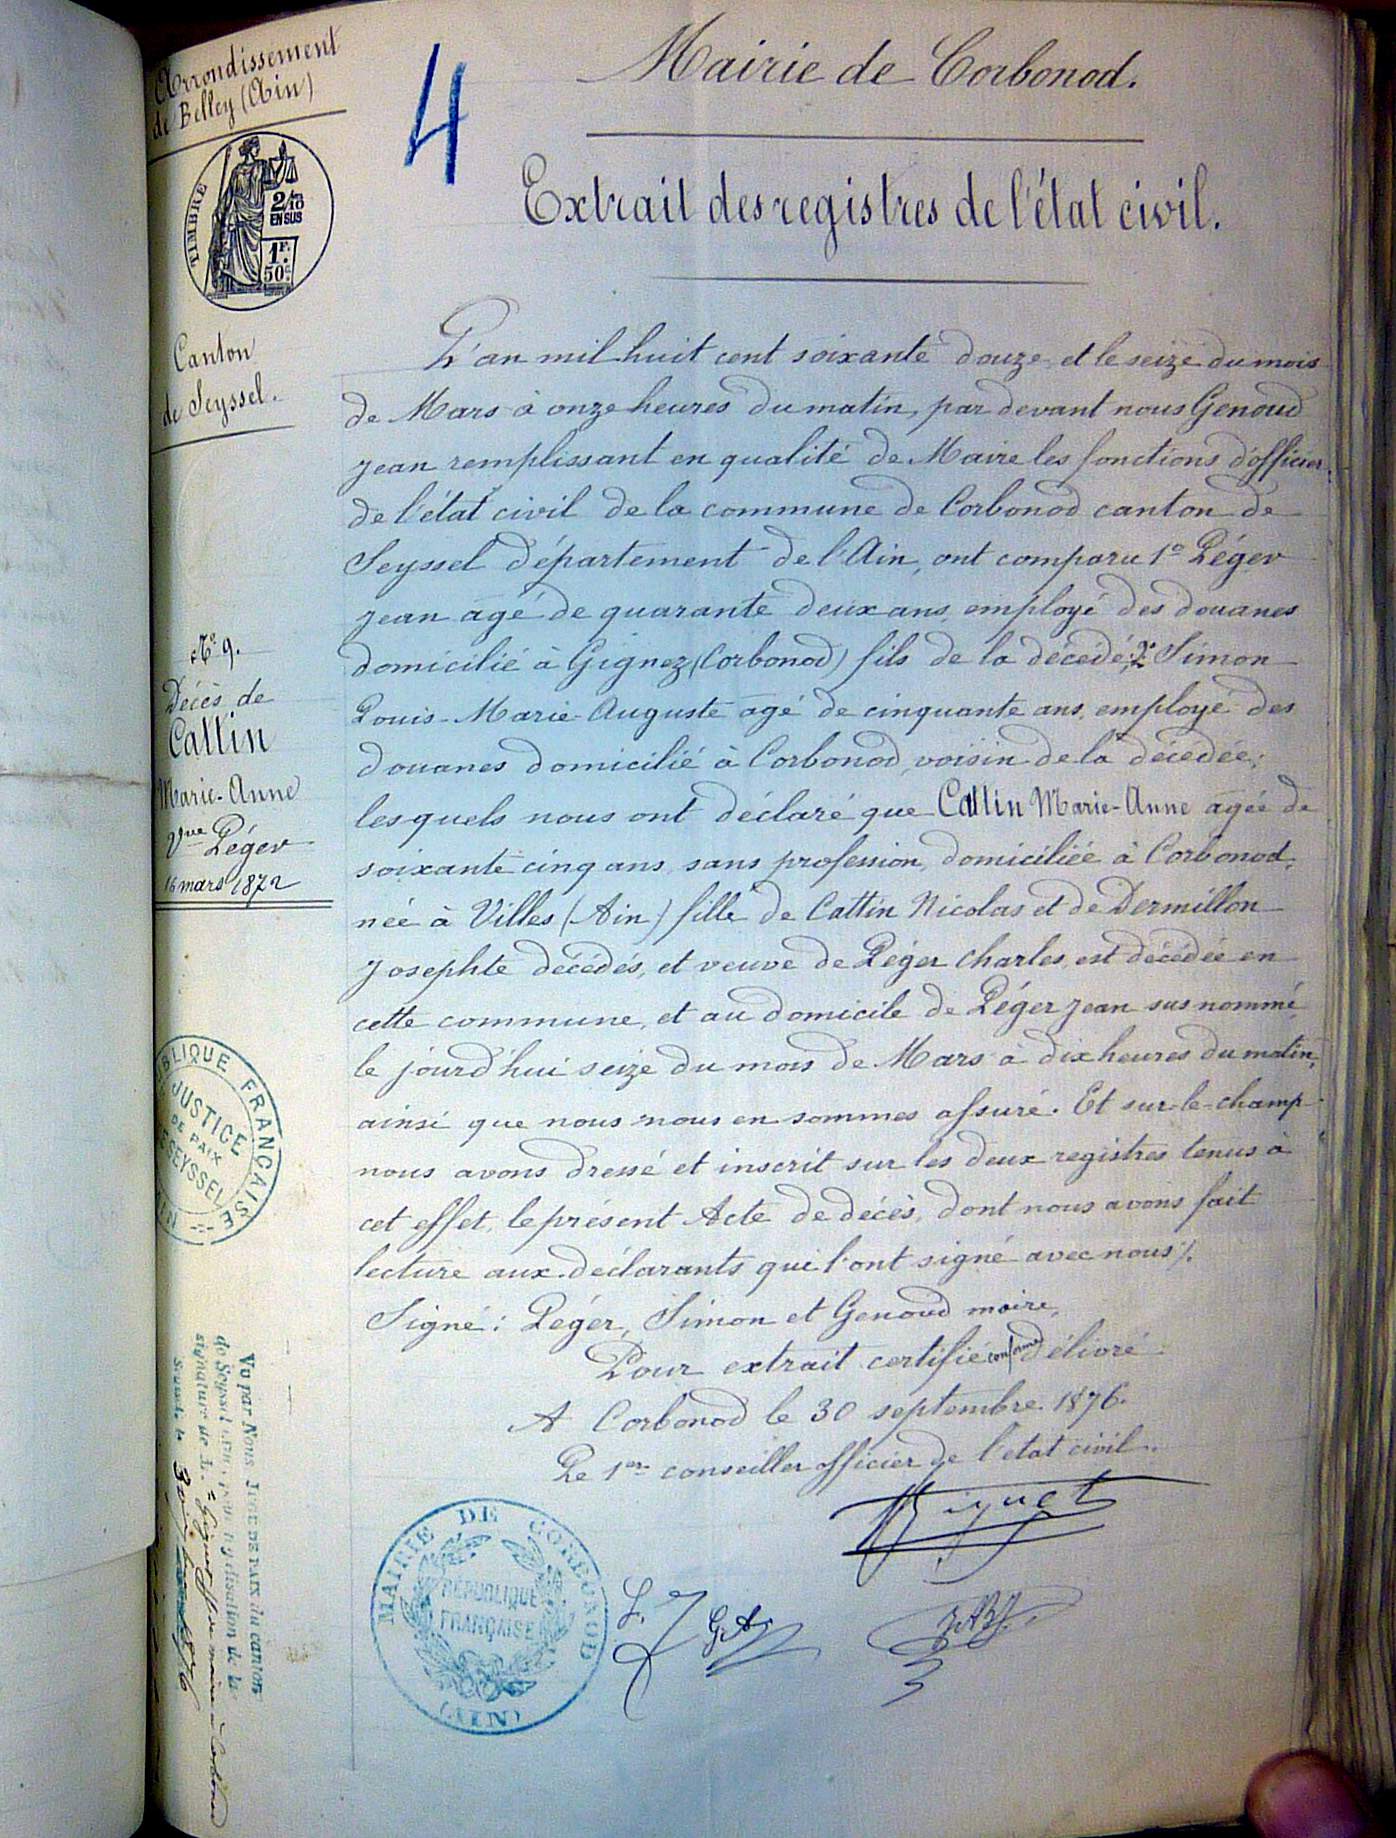 Arrondissement
de Belley (Ain)
4
Mairie de Corbonod.
TIMBRE
2/10
EN SUS
1F.
50c.
Extrait des registres de l'état civil.
Canton
de Seyssel.
L'an mil huit cent soixante douze et le seize du mois
de Mars à onze heures du matin, par devant nous Genoud
Jean remplissant en qualité de Maire les fonctions d'officier
de l'état civil de la commune de Corbonod canton de
Seyssel département de l'Ain, ont comparu 1º Léger
Jean agé de quarante deux ans, employé des douanes
domicilié à Gignez (Corbonod) fils de la décedé; 2º Simon
Louis-Marie-Auguste agé de cinquante ans, employé des
douanes domicilié à Corbonod, voisin de la décedée;
les quels nous ont déclaré que Cattin Marie-Anne agée de
soixante cinq ans, sans profession, domiciliée à Corbonod,
née à Villes (Ain) fille de Cattin Nicolas et de Dermillon
Josephte décédés, et veuve de Léger Charles, est décédée en
cette commune, et au domicile de Léger Jean sus nommé,
le jourd'hui seize du mois de Mars à dix heures du matin,
ainsi que nous nous en sommes assuré. Et sur-le-champ
nous avons dressé et inscrit sur les deux registres tenus à
cet effet, le présent Acte de décès, dont nous avons fait
lecture aux déclarants qui l'ont signé avec nous ./.
Signé: Léger, Simon et Genoud maire,
Pour extrait certifié conforme délivré
A Corbonod le 30 septembre 1876.
Le 1er conseiller officier de l'etat civil.
Nº 9.
Décès de
Cattin
Marie-Anne
Vve Léger
16 mars 1872
BLIQUE FRANÇAISE
JUSTICE
DE PAIX
DE SEYSSEL
AIN
Vu par Nous JUGE DE PAIX du canton
de Seyssel pour légalisation de la
signature de
maire à Corbonod
MAIRIE DE CORBONOD
RÉPUBLIQUE
FRANÇAISE
(AIN)